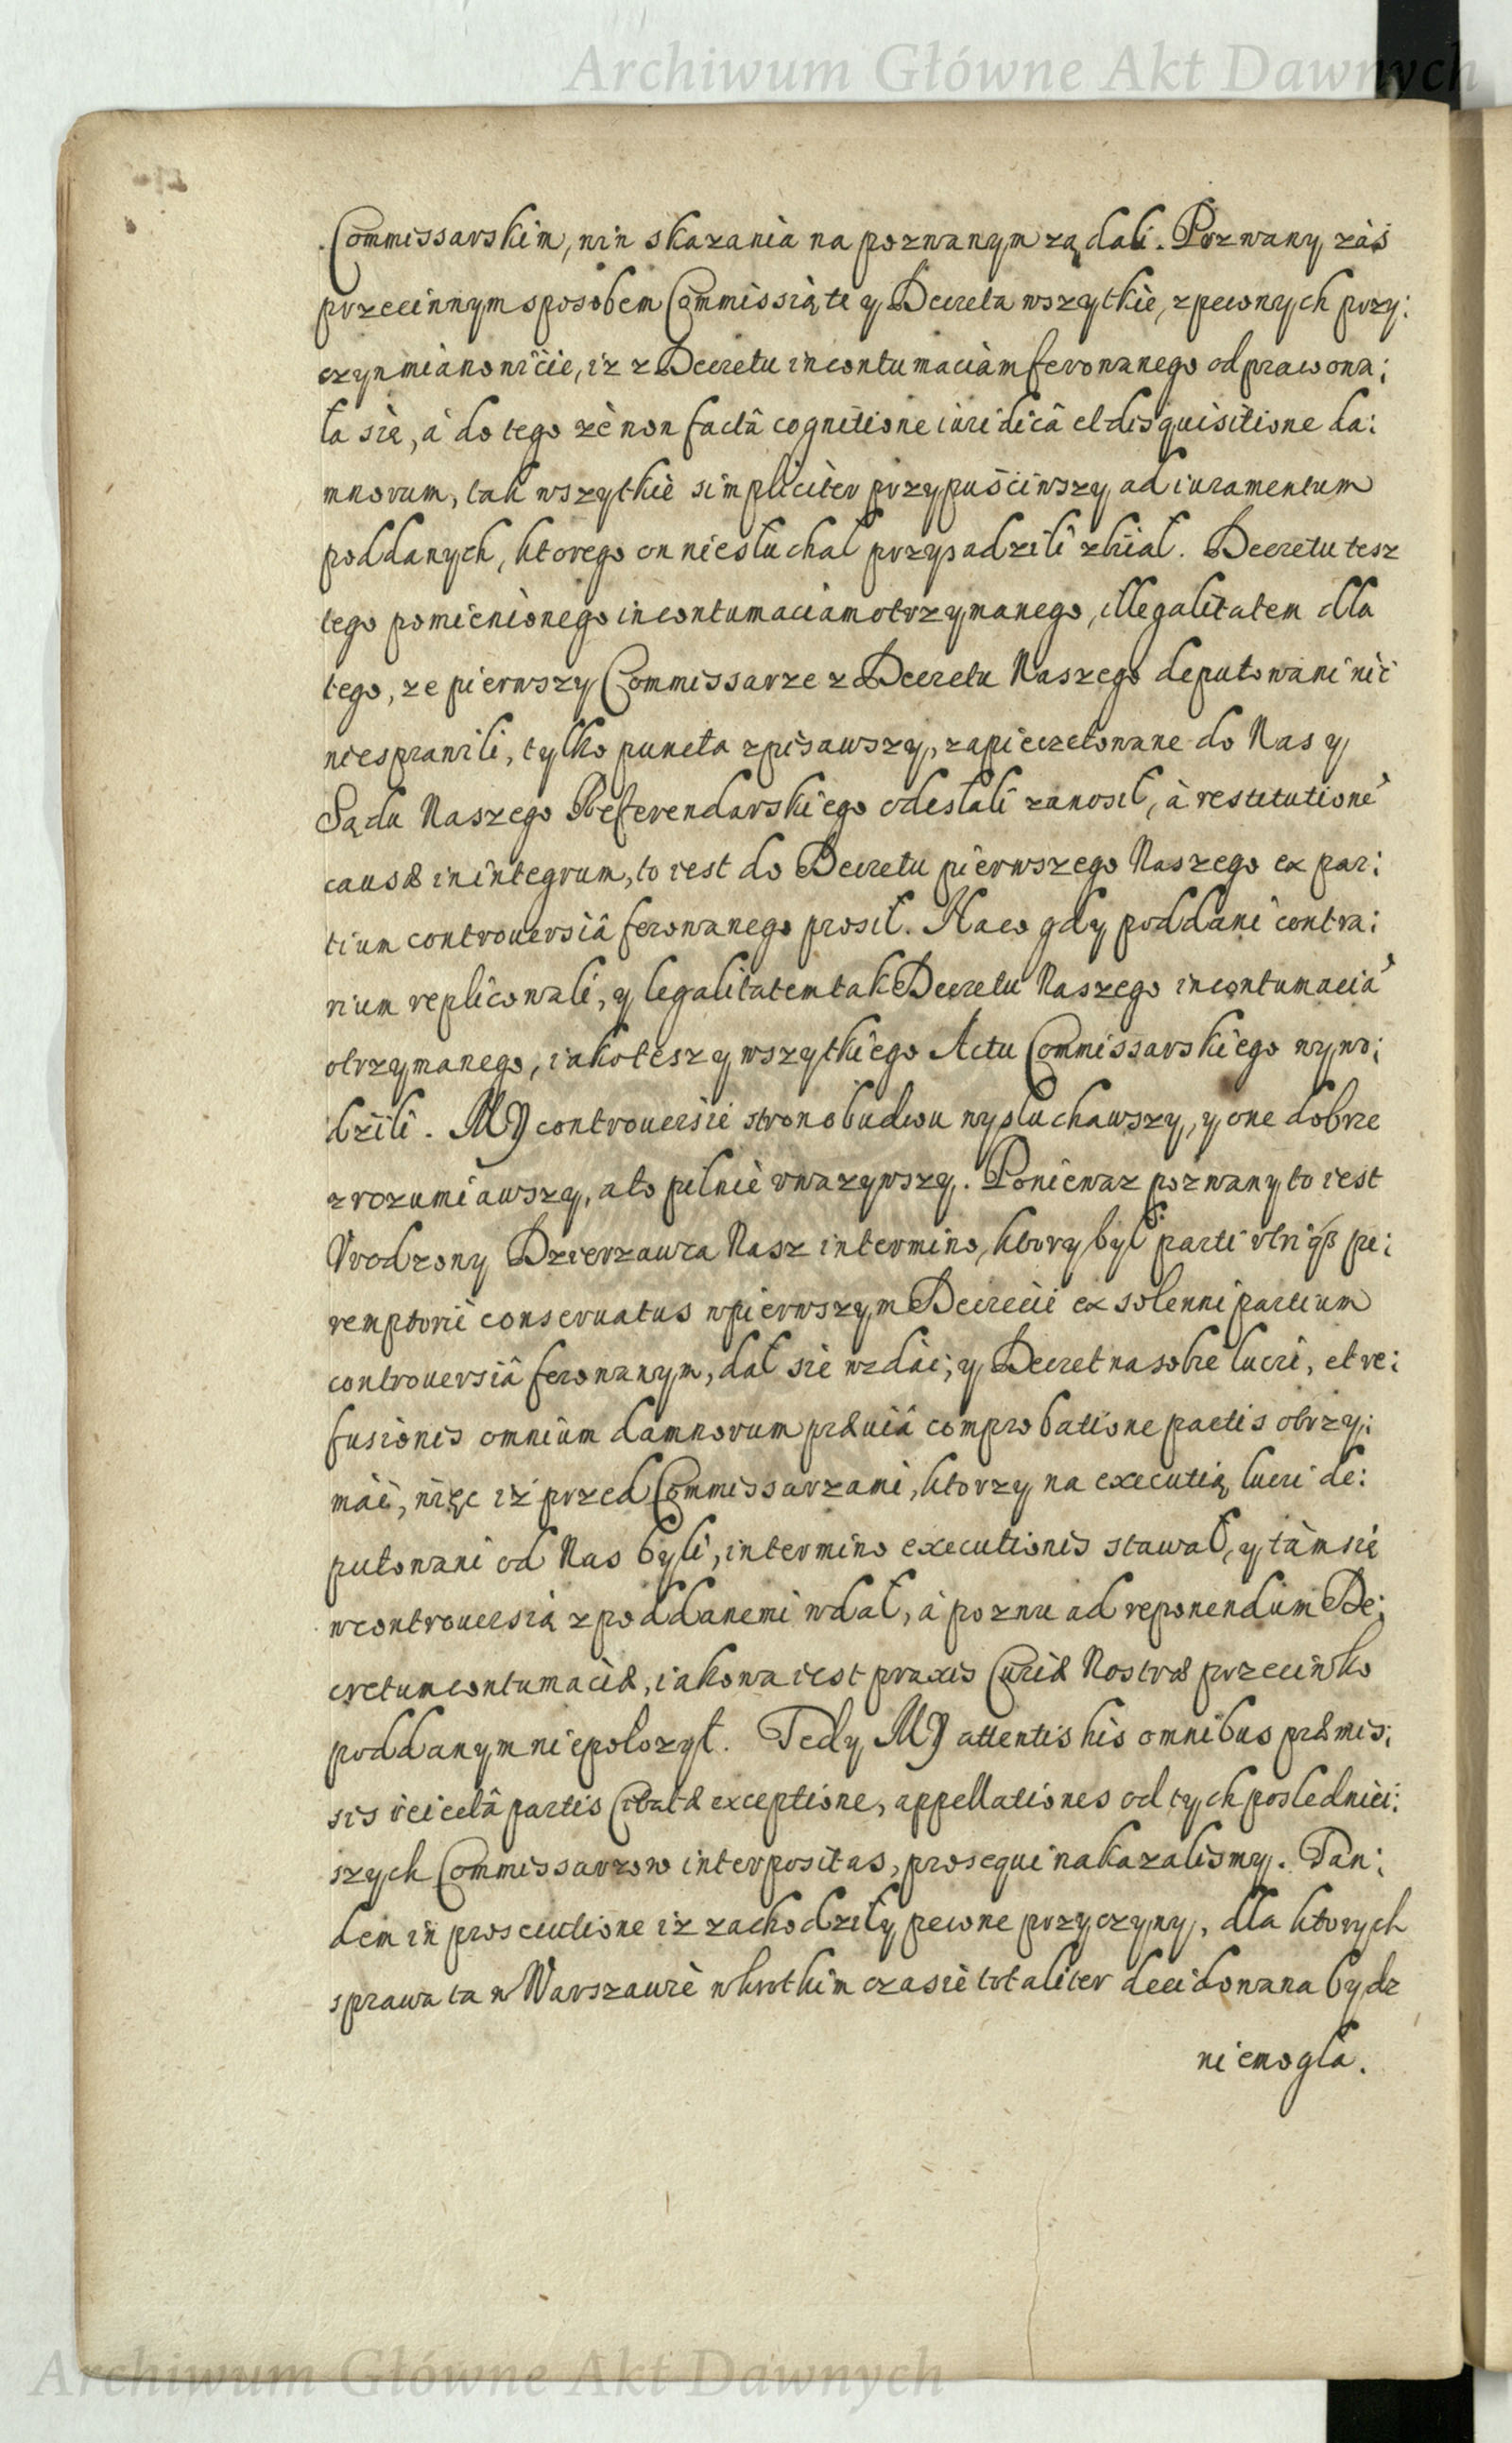 Archiwum Główne Akt Dawnych
Commissarskim, win skazania na poznanym ządali. Pozwany zaś
przeciwnym sposobem Commissią te y Decreta wszytkie, z pewnych przy:
czyn mianowicie, iz z Decretu in contumaciam ferowanego odprawowa:
ła sie, à do tego że non factâ cognitione iuridicâ et disquisitione da:
mnorum, tak wszytkie simpliciter przypuściwszy ad iuramentum
poddanych, ktorego on niesłuchał przysadzili zbiał. Decretu tesz
tego pomienionego in contumaciam otrzymanego, illegalitatem dla
tego, ze pierwszy Commissarze z Decretu Naszego deputowani nic
niesprawili, tylko puncta zpisawszy, zapieczetowane do Nas y
Sądu Naszego Referendarskiego odesłali zanosił, à restitutione
causæ in integrum, to iest do Decretu pierwszego Naszego ex par:
tium controuersiâ ferowanego prosił. Na co gdy poddani contra:
rium replicowali, y legalitatem tak Decretu Naszego in contumaciã
otrzymanego, iako tesz y wszytkiego Actu Commissarskiego wywo:
dzili. MY controuersie stron obudwu wysłuchawszy, y one dobrze
zrozumiawszy, a to pilnie vwazywszy. Poniewaz pozwany to iest
Vrodzony Dzierzawca Nasz in termino, ktory był parti vtriq3 pe:
remptorie conseruatus w pierwszym Decrecie ex solenni partium
controuersiâ ferowanym, dał sie wzdać, y Decret na sobie lucri, et re:
fusionis omnium damnorum præuiâ comprobatione pactis otrzy:
mać, więc iż przed Commissarzami, ktorzy na executią lucri de:
putowani od Nas byli, in termino executionis stawał, y tam sie
w controuersią z poddanemi wdał, à poznu ad reponendum De:
cretum contumaciæ, iakowa iest praxis Curiæ Nostræ przeciwko
poddanym niepołozył. Tedy MY attentis his omnibus præmis:
sis reiectâ partis Citatæ exceptione, appellationes od tych poslednici:
szych Commissarzow interpositas, prosequi nakazalismy. Tan:
dem in prosecutione iz zachodziły pewne przyczyny, dla ktorych
sprawa ta w Warszawie w krotkim czasie totaliter decidowana bydz
niemogła.
Archiwum Główne Akt Dawnych